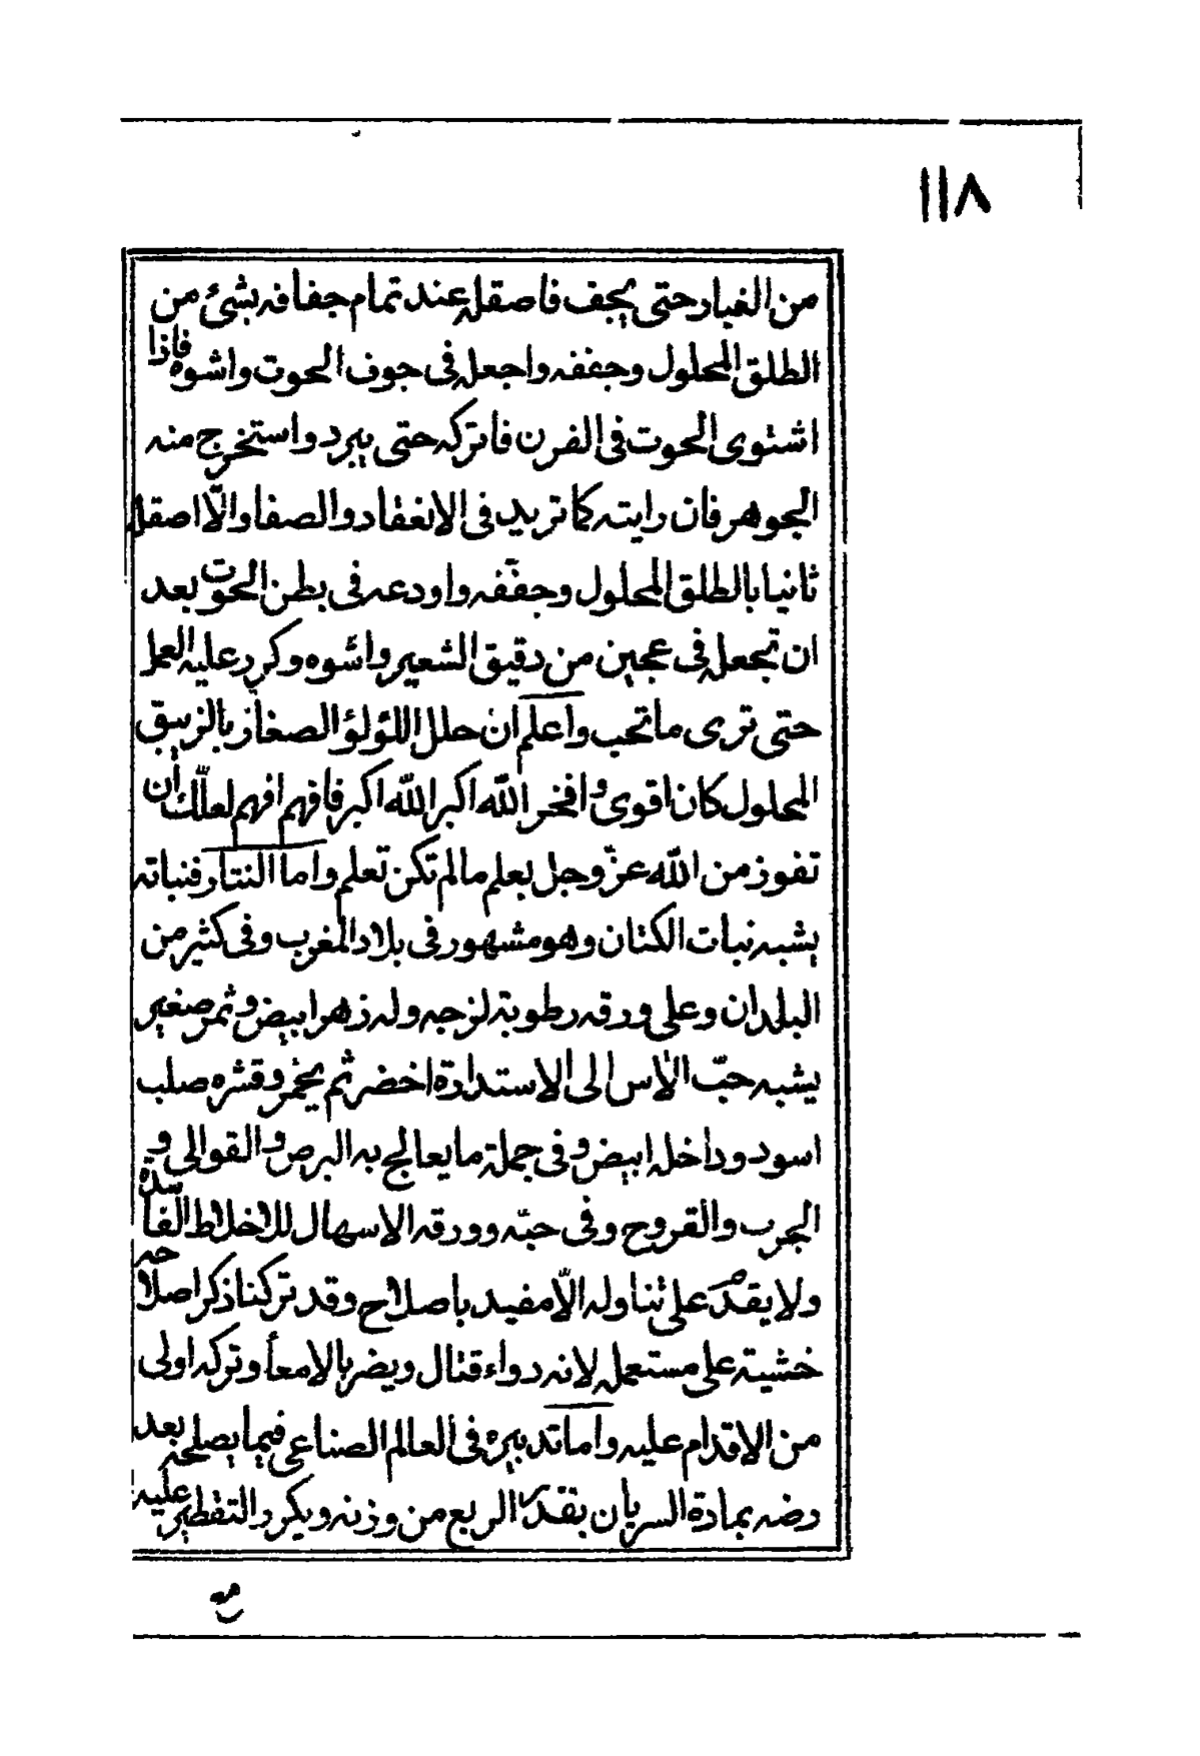 ١١٨
من الغبار حتى يجف فاصقله عند تمام جفافه بشئ من
الطلق المحلول وجففه واجعله فى جوف الحوت واشوه فاذا
اشتوى الحوت فى الفرن فاتركه حتى يبرد واستخرج منه
الجوهر فان رايته كما تريد فى الانعقاد والصفا والّا اصقله
ثانيا بالطلق المحلول وجفّفه واودعه فى بطن الحوت بعد
ان تجعله فى عجين من دقيق الشعير واشوه وكرر عليه العمل
حتى ترى ما تحب واعلم ان حلل اللؤلؤ الصغار بالزيبق
المحلول كان اقوى وافخر الله اكبر الله اكبر فافهم افهم لعلّك ان
تفوز من الله عزّ وجل بعلم مالم تكن تعلم واما النتار فنباته
يشبه نبات الكتان وهو مشهور فى بلاد المغرب وفى كثير من
البلدان وعلى ورقه رطوبة لزجه وله زهر ابيض وثمر صغير
يشبه حبّ الآس الى الاستدارة اخضر ثم يحمر وقشره صلب
اسود وداخله ابيض وفى جملة ما يعالج به البرص والقوالى و
الجرب والقروح وفى حبّه وورقه الاسهال للاخلاط الفاسدة
ولا يقدم على تناوله الّا مفيد باصلاح وقد تركنا ذكر اصلاحه
خشية على مستعمله لانه دواء قتال ويضر بالامعأ وتركه اولى
من الاقدام عليه واما تدبيره فى العالم الصناعى فيما يصلحه بعد
رضه بمادة السريان بقدر الربع من وزنه ويكرر التقطير عليه